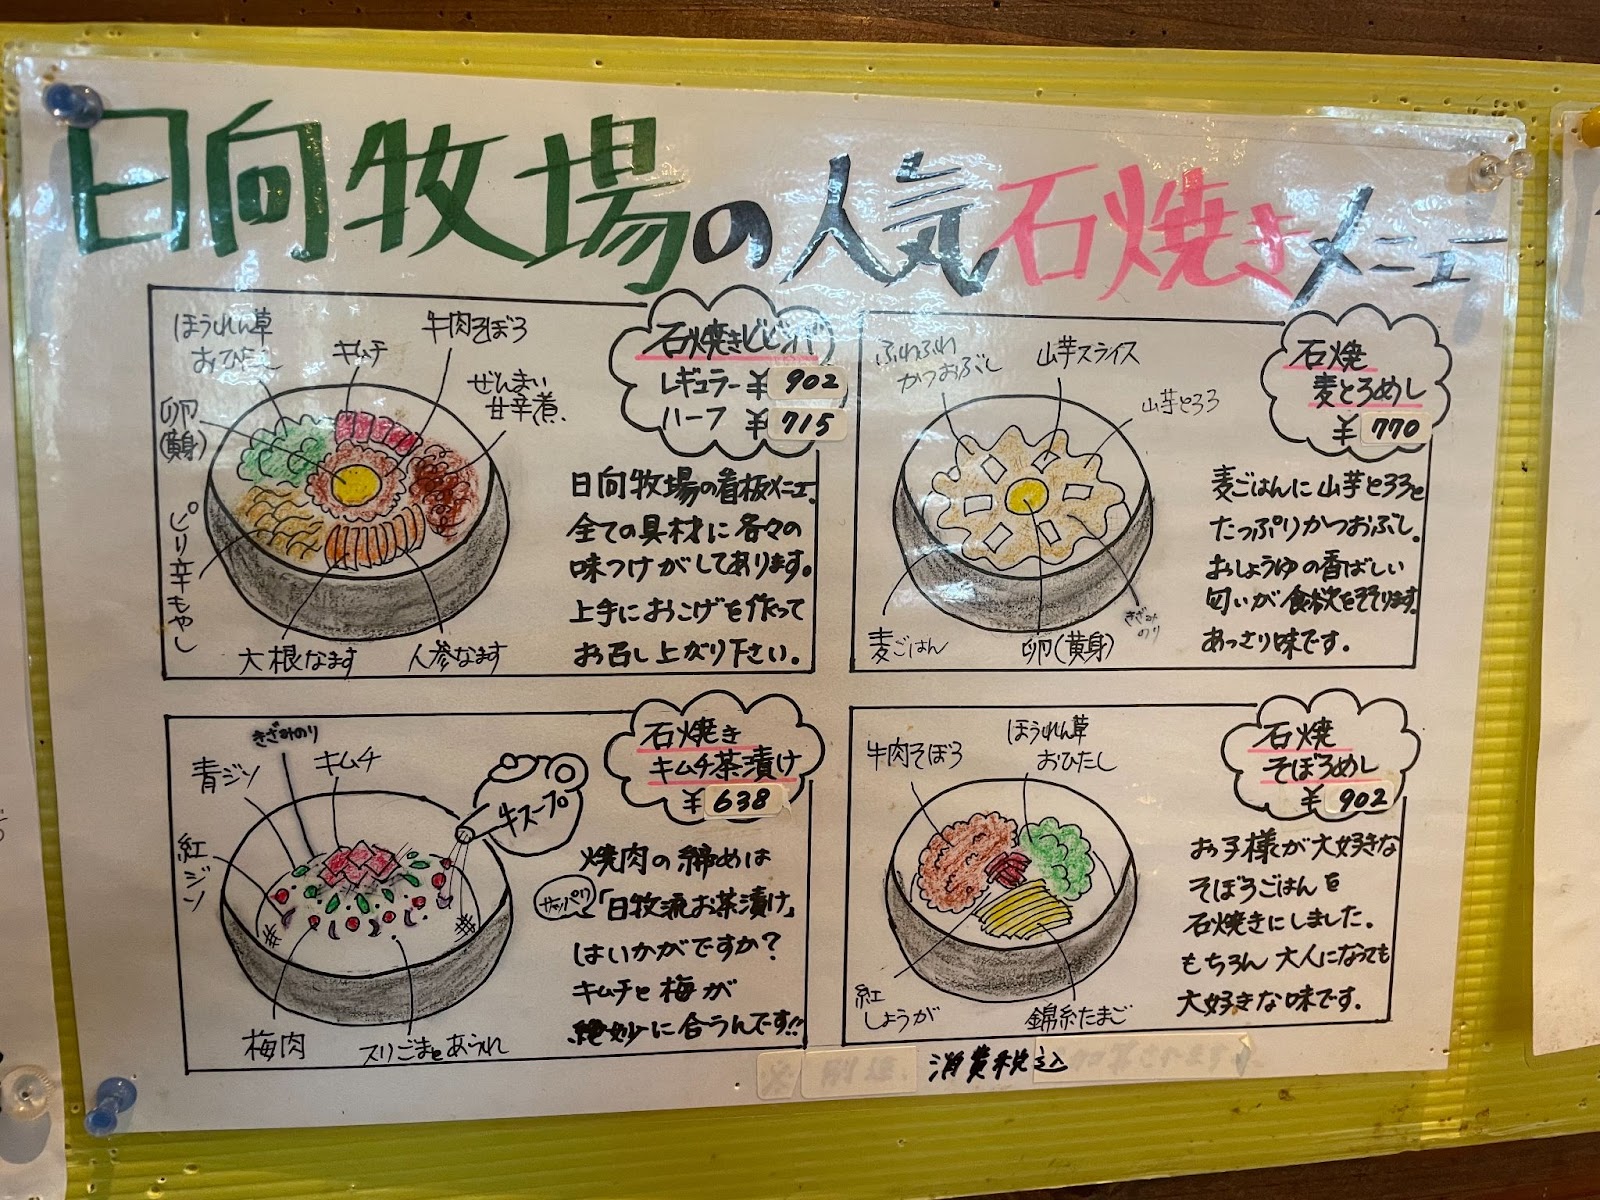 日向牧場の人気石焼きメニュー
ほうれん草
おひたし
キムチ
牛肉そぼろ
ぜんまい
甘辛煮
卵
(黄身)
ピリ辛もやし
大根なます
人参なます
石焼きビビンバ
レギュラー ¥902
ハーフ ¥715
日向牧場の看板メニュー。
全ての具材に各々の
味つけがしてあります。
上手におこげを作って
お召し上がり下さい。
ふわふわ
かつおぶし
山芋スライス
山芋とろろ
麦ごはん
卵(黄身)
きざみ
のり
石焼
麦とろめし
¥770
麦ごはんに山芋とろろと
たっぷりかつおぶし。
おしょうゆの香ばしい
匂いが食欲をそそります。
あっさり味です。
きざみのり
青ジソ
キムチ
紅ジソ
牛スープ
梅肉
スリごまとあられ
石焼き
キムチ茶漬け
¥638
焼肉の締めは
サッパリ
「日牧流お茶漬け」
はいかがですか?
キムチと梅が
絶妙に合うんです!!
牛肉そぼろ
ほうれん草
おひたし
紅
しょうが
錦糸たまご
石焼
そぼろめし
¥902
お子様が大好きな
そぼろごはんを
石焼きにしました。
もちろん大人になっても
大好きな味です。
消費税込